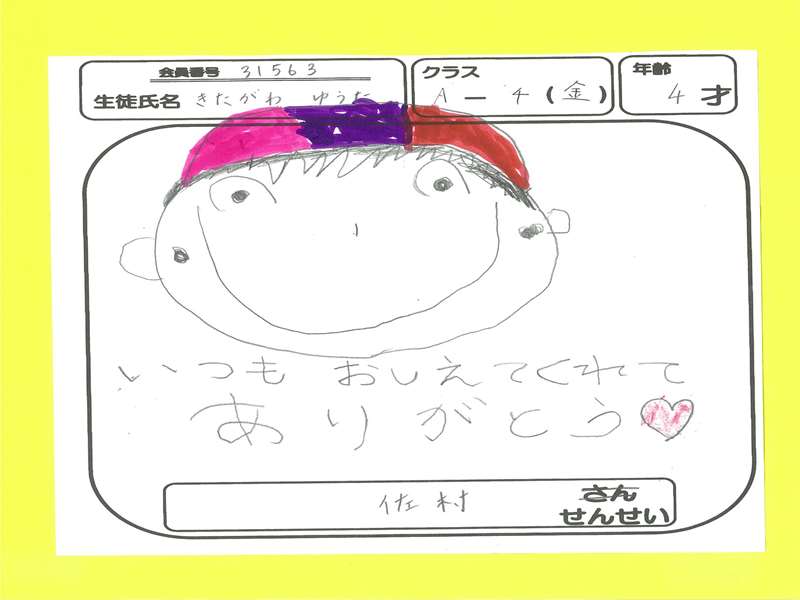 会員番号 31563
生徒氏名 きたがわ ゆうた
クラス
A－4(金)
年齢
4才
いつも おしえてくれて
ありがとう
佐村 さん
せんせい